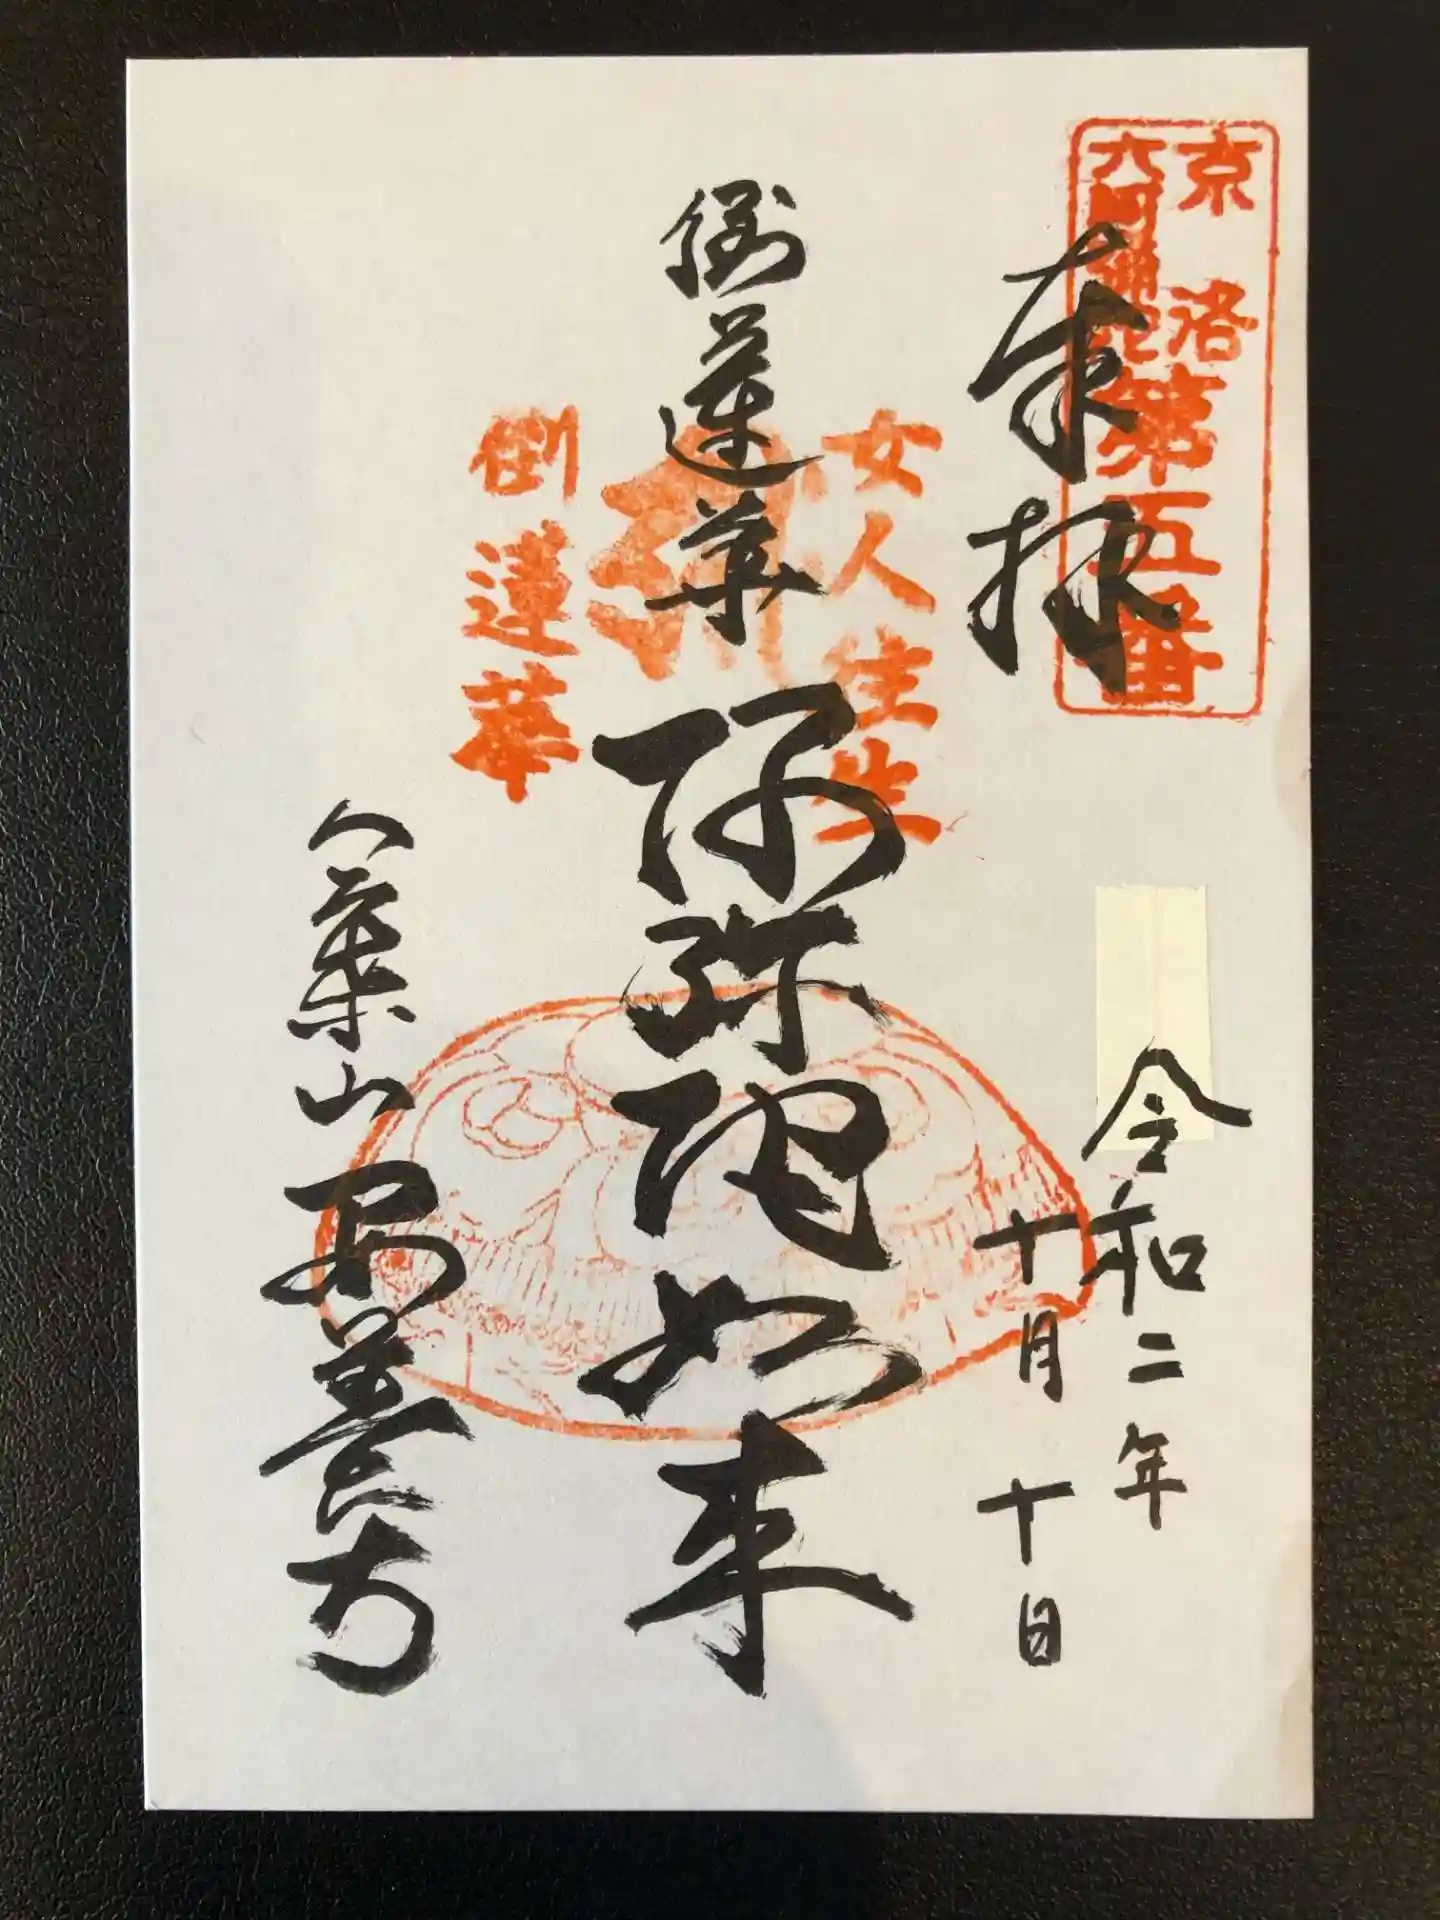 京洛
六阿弥陀
第五番
奉拝
令和二年
十月十日
女人往生
倒蓮華
倒蓮華
阿弥陀如来
八葉山
安養寺